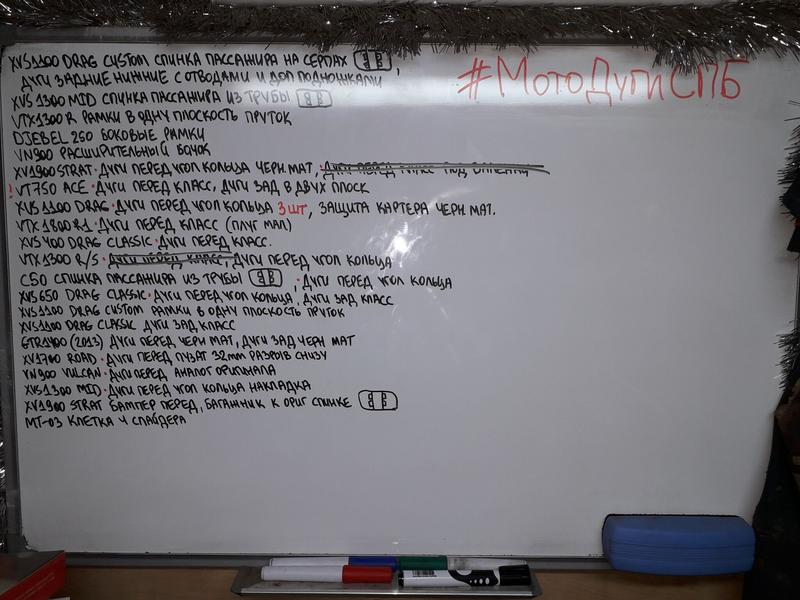 XVS1100 DRAG CUSTOM СПИНКА ПАССАЖИРА НА СЕРГАХ ,
#МотоДугиСПБ
ДУГИ ЗАДНИЕ НИЖНИЕ С ОТВОДАМИ И ДОП ПОДНОЖКАМИ
XVS 1300 MID СПИНКА ПАССАЖИРА ИЗ ТРУБЫ
VTX1300 R РАМКИ В ОДНУ ПЛОСКОСТЬ ПРУТОК
DJEBEL 250 БОКОВЫЕ РАМКИ
VN900 РАСШИРИТЕЛЬНЫЙ БАЧОК
XV1900 STRAT · ДУГИ ПЕРЕД УГОЛ КОЛЬЦА ЧЕРН МАТ, ДУГИ ПЕРЕД КЛАСС ПОД
! VT750 ACE · ДУГИ ПЕРЕД КЛАСС, ДУГИ ЗАД В ДВУХ ПЛОСК
XVS 1100 DRAG · ДУГИ ПЕРЕД УГОЛ КОЛЬЦА 3 ШТ, ЗАЩИТА КАРТЕРА ЧЕРН МАТ.
VTX 1800 R1 · ДУГИ ПЕРЕД КЛАСС (ПЛУГ МАЛ)
XVS 400 DRAG CLASSIC · ДУГИ ПЕРЕД КЛАСС.
VTX 1300 R/S · ДУГИ ПЕРЕД КЛАСС, ДУГИ ПЕРЕД УГОЛ КОЛЬЦА
C50 СПИНКА ПАССАЖИРА ИЗ ТРУБЫ , · ДУГИ ПЕРЕД УГОЛ КОЛЬЦА
XVS 650 DRAG CLASSIC · ДУГИ ПЕРЕД УГОЛ КОЛЬЦА, ДУГИ ЗАД КЛАСС
XVS 1100 DRAG CUSTOM РАМКИ В ОДНУ ПЛОСКОСТЬ ПРУТОК
XVS1100 DRAG CLASSIC ДУГИ ЗАД КЛАСС
GTR1400 (2013) ДУГИ ПЕРЕД ЧЕРН МАТ, ДУГИ ЗАД ЧЕРН МАТ
XV1700 ROAD · ДУГИ ПЕРЕД ПУЗАТ 32mm РАЗРЫВ СНИЗУ
VN900 VULCAN · ДУГИ ПЕРЕД АНАЛОГ ОРИГИНАЛА
XVS 1300 MID · ДУГИ ПЕРЕД УГОЛ КОЛЬЦА НАКЛАДКА
XV1900 STRAT БАМПЕР ПЕРЕД, БАГАЖНИК К ОРИГ СПИНКЕ
MT-03 КЛЕТКА 4 СЛАЙДЕРА